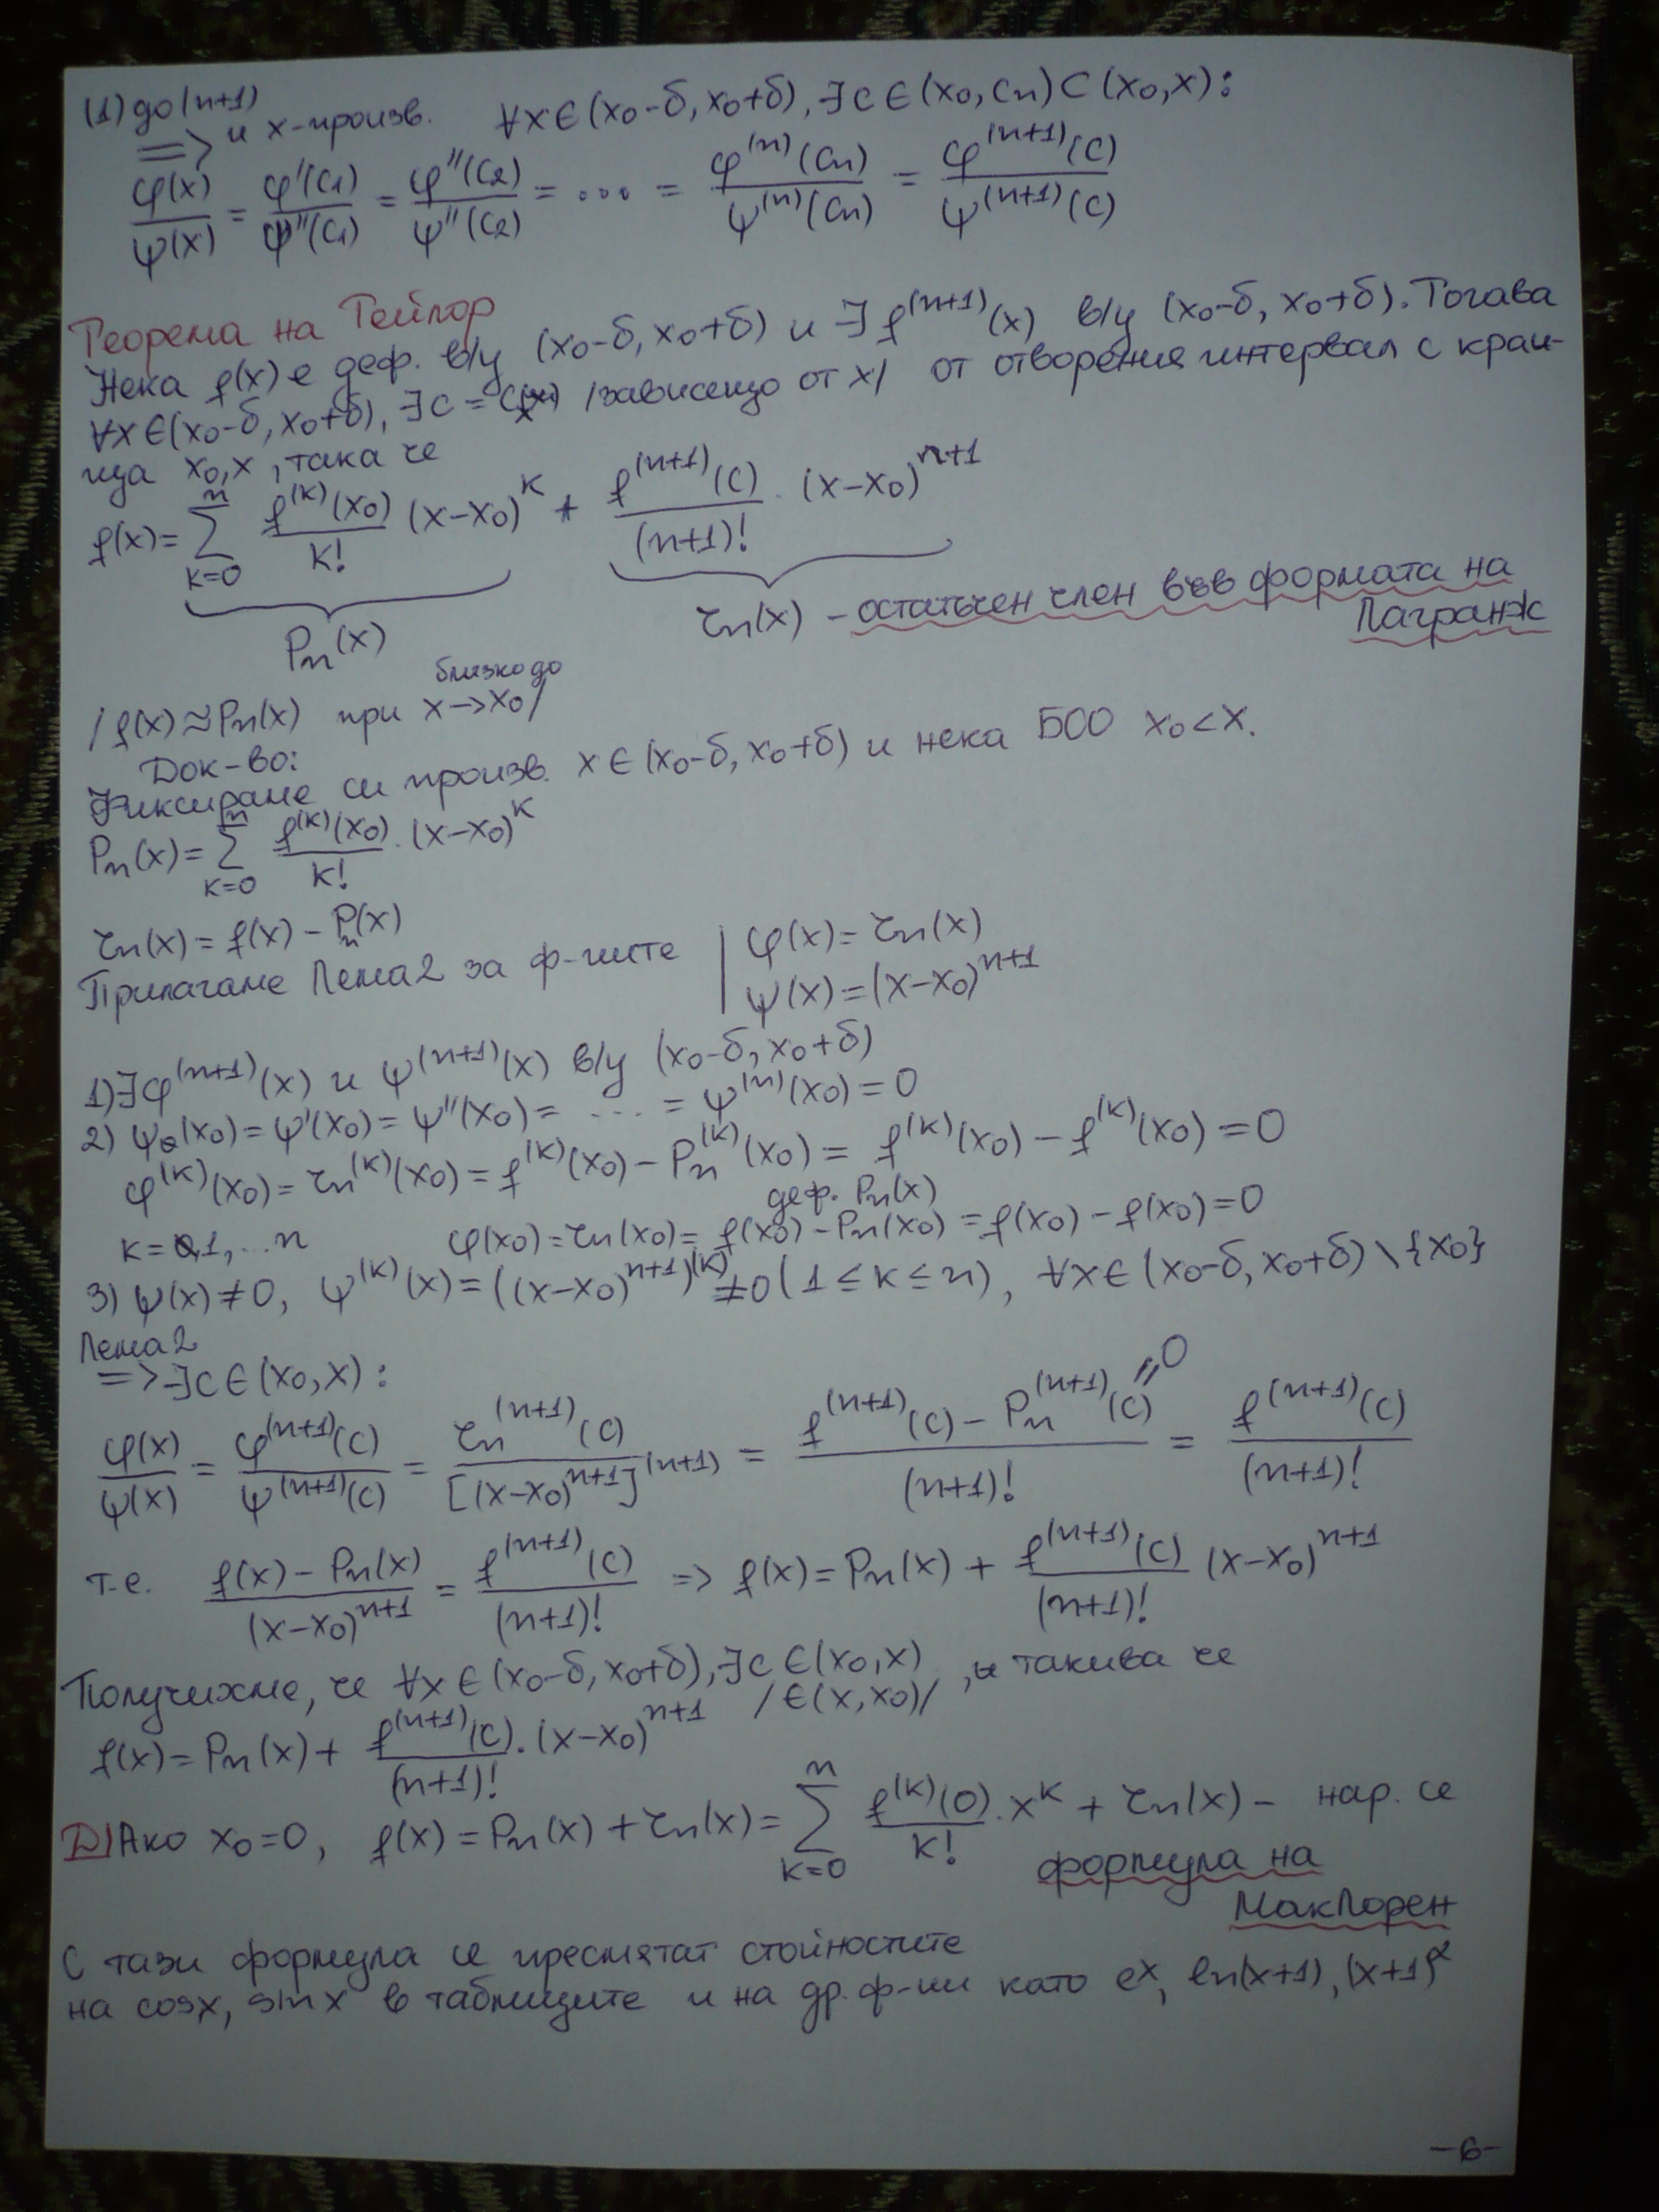 (1) до (n+1)
=> и x-произв. ∀x∈(x₀-δ, x₀+δ), ∃c∈(x₀,cₙ)⊂(x₀,x):
φ(x)/ψ(x) = φ'(c₁)/ψ''(c₁) = φ''(c₂)/ψ''(c₂) = ... = φ⁽ⁿ⁾(cₙ)/ψ⁽ⁿ⁾(cₙ) = φ⁽ⁿ⁺¹⁾(c)/ψ⁽ⁿ⁺¹⁾(c)
Теорема на Тейлор
Нека f(x) е деф. в/у (x₀-δ, x₀+δ) и ∃ f⁽ⁿ⁺¹⁾(x) в/у (x₀-δ, x₀+δ). Тогава
∀x∈(x₀-δ, x₀+δ), ∃c = c(x) /зависещо от x/ от отворения интервал с краи-
ща x₀,x, така че
f(x) = ∑ₖ₌₀ⁿ f⁽ᵏ⁾(x₀)/k! (x-x₀)ᵏ + f⁽ⁿ⁺¹⁾(c)/(n+1)! . (x-x₀)ⁿ⁺¹
Pₙ(x) rₙ(x) - остатъчен член във формата на
Лагранж
близко до
/f(x)≈Pₙ(x) при x→x₀/
Док-во:
Фиксираме си произв. x∈(x₀-δ, x₀+δ) и нека БОО x₀<x.
Pₙ(x) = ∑ₖ₌₀ⁿ f⁽ᵏ⁾(x₀)/k! . (x-x₀)ᵏ
rₙ(x) = f(x) - Pₙ(x)
Прилагаме Лема 2 за ф-иите | φ(x) = rₙ(x)
ψ(x) = (x-x₀)ⁿ⁺¹
1) ∃φ⁽ⁿ⁺¹⁾(x) и ψ⁽ⁿ⁺¹⁾(x) в/у (x₀-δ, x₀+δ)
2) ψ(x₀) = ψ'(x₀) = ψ''(x₀) = .... = ψ⁽ⁿ⁾(x₀) = 0
φ⁽ᵏ⁾(x₀) = rₙ⁽ᵏ⁾(x₀) = f⁽ᵏ⁾(x₀) - Pₙ⁽ᵏ⁾(x₀) = f⁽ᵏ⁾(x₀) - f⁽ᵏ⁾(x₀) = 0
деф. Pₙ(x)
k = 0,1,...n φ(x₀) = rₙ(x₀) = f(x₀) - Pₙ(x₀) = f(x₀) - f(x₀) = 0
3) ψ(x) ≠ 0, ψ⁽ᵏ⁾(x) = ((x-x₀)ⁿ⁺¹)⁽ᵏ⁾ ≠ 0 (1 ≤ k ≤ n), ∀x∈(x₀-δ, x₀+δ) \ {x₀}
Лема 2
=> ∃c∈(x₀,x):
φ(x)/ψ(x) = φ⁽ⁿ⁺¹⁾(c)/ψ⁽ⁿ⁺¹⁾(c) = rₙ⁽ⁿ⁺¹⁾(c)/[(x-x₀)ⁿ⁺¹]⁽ⁿ⁺¹⁾ = (f⁽ⁿ⁺¹⁾(c) - Pₙ⁽ⁿ⁺¹⁾(c) =0)/(n+1)! = f⁽ⁿ⁺¹⁾(c)/(n+1)!
т.е. (f(x) - Pₙ(x))/(x-x₀)ⁿ⁺¹ = f⁽ⁿ⁺¹⁾(c)/(n+1)! => f(x) = Pₙ(x) + f⁽ⁿ⁺¹⁾(c)/(n+1)! (x-x₀)ⁿ⁺¹
Получихме, че ∀x∈(x₀-δ, x₀+δ), ∃c∈(x₀,x) /∈(x,x₀)/, такива че
f(x) = Pₙ(x) + f⁽ⁿ⁺¹⁾(c)/(n+1)! . (x-x₀)ⁿ⁺¹
D| Ако x₀=0, f(x) = Pₙ(x) + rₙ(x) = ∑ₖ₌₀ⁿ f⁽ᵏ⁾(0)/k! . xᵏ + rₙ(x) - нар. се
формула на
МакЛорен
С тази формула се пресмятат стойностите
на cosx, sinx в таблиците и на др. ф-ии като eˣ, ln(x+1), (x+1)^α
-6-